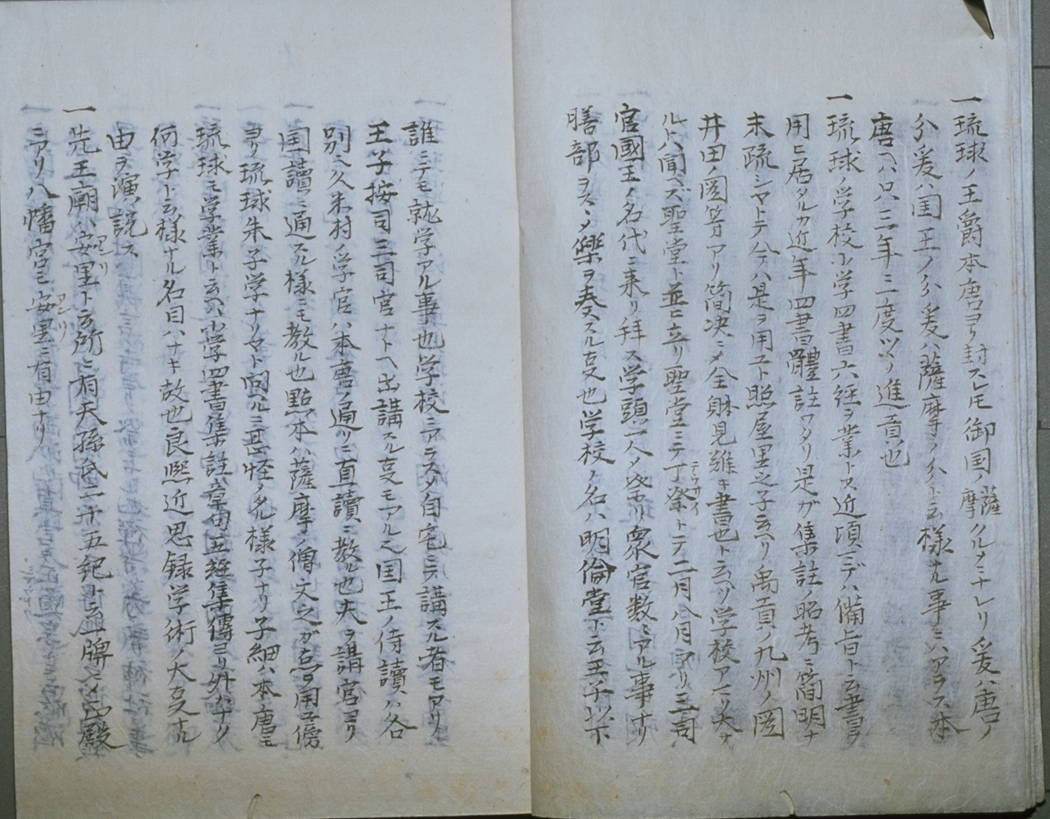 一琉球ノ王爵本唐ヨリ封スレモ御国ノ薩摩クルタミナレリ爰ハ唐ノ
分爰ハ国王ノ分爰ハ薩摩ノ分ト云様ナル事ニハアラス本
唐ハ只三年ニ一度ツヽノ進貢也
一琉球ノ学校小学四書六経ヲ業トス近頃マデハ備旨ト云書ヲ
用ヒ居タルカ近年四書體註ワタリ是ガ集註ノ照考ニ簡明ナ
末疏シヤトテ今ハ是ヲ用ユト照屋里之子云ヘリ禹貢ノ九州ノ図
井田ノ図等アリ簡决ニメ全躰見雖キ書也ト云ヘリ学校アマリ大ナ
ルハ聞ヘズ聖堂ト並ヒ立リ聖堂ニテ丁祭トテ二月八月ヨリ三司
テウサイ
官國王ノ名代ニ来リ拜ス学頭二人メ 衆官数ミアル事ナリ
膳部ヲスヽメ樂ヲ奏スル支也学校ノ名ハ明倫堂ト云王子以下
誰ニテモ就学アル事也学校ニアラスメ自宅ニテ講スル者モアリ
王子按司三司官ナトヘ出講スル支モアル也国王ノ侍讀ハ各
別久米村ノ学官ハ本唐ノ通リニ直讀ニ教ル也夫ヲ講官ヨリ
国讀ニ通スル様ニモ教ル也點本ハ薩摩ノ僧文之ガ点ヲ用ユ傍
ヨリ琉球朱子学ナリヤト问ルニ甚怪シ皃様子ナリ子細ハ本唐モ
琉球モ学業ト云ハ小学四書集註章句五経集傳ヨリ外ハナク
何学ト云様ナル名目ハナキ故也良熙近思録学術ノ大支ナル
由ヲ演説ス
一先王廟ハ安里ト云所ニ有天孫氏二十五紀ハ并牌ニシ正殿
アサリ
ニアリ八幡宮モ安里ニ有由ナリ
アンリ